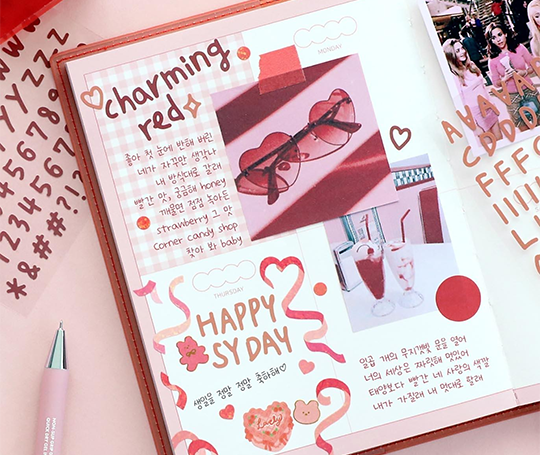 charming
red
MONDAY
좋아 첫 눈에 반해 버린
네가 자꾸만 생각나
내 방식대로 갈래
빨간 맛, 궁금해 honey
깨물면 점점 녹아든
strawberry 그 맛
corner candy shop
찾아 봐 baby
THURSDAY
HAPPY
SY DAY
생일을 정말 정말 축하해♡
Lucky
일곱 개의 무지갯빛 문을 열어
너의 세상은 짜릿해 멋있어
태양보다 빨간 네 사랑의 색깔
내가 가질래 내 멋대로 할래
QUICK DRY GEL